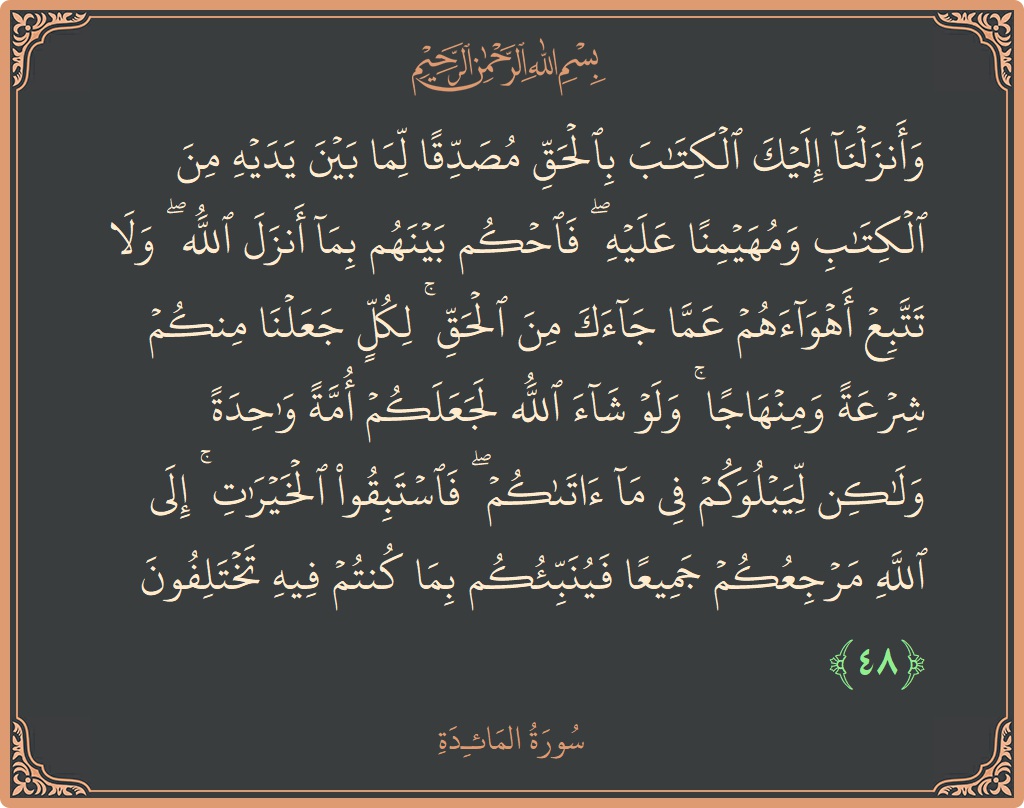 بِسْمِ اللَّهِ الرَّحْمَٰنِ الرَّحِيمِ
وَأَنزَلْنَآ إِلَيْكَ ٱلْكِتَـٰبَ بِٱلْحَقِّ مُصَدِّقًا لِّمَا بَيْنَ يَدَيْهِ مِنَ
ٱلْكِتَـٰبِ وَمُهَيْمِنًا عَلَيْهِ ۖ فَٱحْكُم بَيْنَهُم بِمَآ أَنزَلَ ٱللَّهُ ۖ وَلَا
تَتَّبِعْ أَهْوَآءَهُمْ عَمَّا جَآءَكَ مِنَ ٱلْحَقِّ ۚ لِكُلٍّ جَعَلْنَا مِنكُمْ
شِرْعَةً وَمِنْهَاجًا ۚ وَلَوْ شَآءَ ٱللَّهُ لَجَعَلَكُمْ أُمَّةً وَٰحِدَةً
وَلَـٰكِن لِّيَبْلُوَكُمْ فِى مَآ ءَاتَىٰكُمْ ۖ فَٱسْتَبِقُوا۟ ٱلْخَيْرَٰتِ ۚ إِلَى
ٱللَّهِ مَرْجِعُكُمْ جَمِيعًا فَيُنَبِّئُكُم بِمَا كُنتُمْ فِيهِ تَخْتَلِفُونَ
﴿٤٨﴾
سُورَةُ المَائـِدَةِ